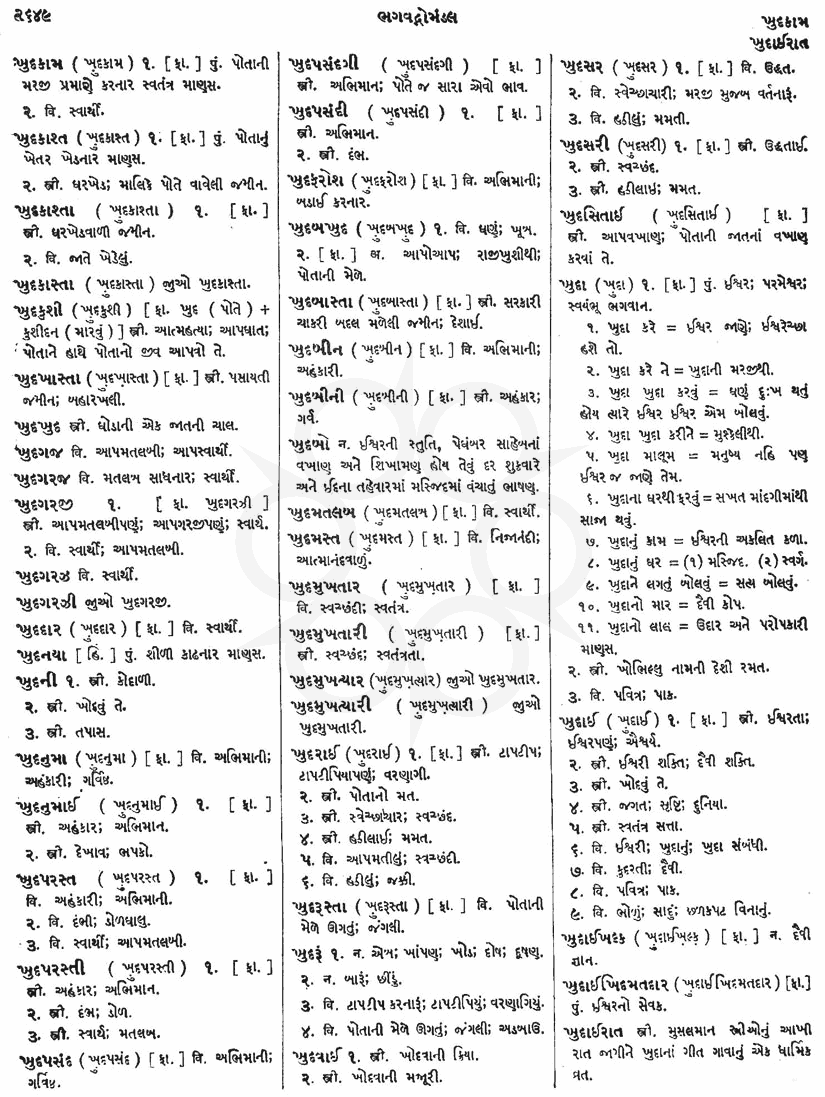 ૨૬૪૯
ભગવદ્ગોમંડલ
ખુદકામ
ખુદાઈરાત
ખુદકામ ( ખુ઼દકામ ) ૧. [ ફા. ] પું. પોતાની
મરજી પ્રમાણે કરનાર સ્વતંત્ર માણુસ.
૨. વિ. સ્વાર્થી.
ખુદકાસ્ત ( ખુ઼દકાસ્ત ) ૧. [ ફા. ] પું. પોતાનું
ખેતર ખેડનાર માણુસ.
૨. સ્ત્રી. ઘરખેડ; માલિકે પોતે વાવેલી જમીન.
ખુદકાસ્તા ( ખુ઼દકાસ્તા ) ૧. [ ફા. ]
સ્ત્રી. ઘરખેડવાળી જમીન.
૨. વિ. જાતે ખેડેલું.
ખુદકાસ્તા ( ખુ઼દકાસ્તા ) જુઓ ખુદકાસ્તા.
ખુદકુશી ( ખુ઼દકુશી ) [ ફા. ખુદ ( પોતે ) +
કુશીદન ( મારવું ) ] સ્ત્રી. આત્મહત્યા; આપઘાત;
પોતાને હાથે પોતાનો જીવ આપવો તે.
ખુદખાસ્તા ( ખુ઼દખાસ્તા ) [ ફા. ] સ્ત્રી. પસાયતી
જમીન; બહારખલી.
ખુદખુદ સ્ત્રી. ઘોડાની એક જાતની ચાલ.
ખુદગજ વિ. આપમતલબી; આપસ્વાર્થી.
ખુદગરજ વિ. મતલબ સાધનાર; સ્વાર્થી.
ખુદગરજી ૧. [ ફા. ખુદગરઝી ]
સ્ત્રી. આપમતલબીપણું; આપગરજીપણું; સ્વાર્થ.
૨. વિ. સ્વાર્થી; આપમતલબી.
ખુદગરઝ વિ. સ્વાર્થી.
ખુદગરઝી જુઓ ખુદગરજી.
ખુદદાર ( ખુ઼દદાર ) [ ફા. ] વિ. સ્વાર્થી.
ખુદનયા [ હિં. ] પું. શીળી કાઢનાર માણુસ.
ખુદની ૧. સ્ત્રી. કોદાળી.
૨. સ્ત્રી. ખોદવું તે.
૩. સ્ત્રી. તપાસ.
ખુદનુમા ( ખુ઼દનુમા ) [ ફા. ] વિ. અભિમાની;
અહંકારી; ગર્વિષ્ઠ.
ખુદનુમાઈ ( ખુ઼દનુમાઈ ) ૧. [ ફા. ]
સ્ત્રી. અહંકાર; અભિમાન.
૨. સ્ત્રી. દેખાવ; ભપકો.
ખુદપરસ્ત ( ખુ઼દપરસ્ત ) ૧. [ ફા. ]
વિ. અહંકારી; અભિમાની.
૨. વિ. દંભી; ડોળઘાલુ.
૩. વિ. સ્વાર્થી; આપમતલબી.
ખુદપરસ્તી ( ખુ઼દપરસ્તી ) ૧. [ ફા. ]
સ્ત્રી. અહંકાર; અભિમાન.
૨. સ્ત્રી. દંભ; ડોળ.
૩. સ્ત્રી. સ્વાર્થ; મતલબ.
ખુદપસંદ ( ખુ઼દપસંદ ) [ ફા. ] વિ. અભિમાની;
ગર્વિષ્ઠ.
ખુદપસંદગી ( ખુ઼દપસંદગી ) [ ફા. ]
સ્ત્રી. અભિમાન; પોતે જ સારા એવો ભાવ.
ખુદપસંદી ( ખુ઼દપસંદી ) ૧. [ ફા. ]
સ્ત્રી. અભિમાન.
૨. સ્ત્રી. દંભ.
ખુદફરોશ ( ખુ઼દફરોશ ) [ ફા. ] વિ. અભિમાની;
બડાઈ કરનાર.
ખુદબખુદ ( ખુ઼દબખુ઼દ ) ૧. વિ. ઘણું; ખૂબ.
૨. [ ફા. ] અ. આપોઆપ; રાજીખુશીથી;
પોતાની મેળે.
ખુદબાસ્તા ( ખુ઼દબાસ્તા ) [ ફા. ] સ્ત્રી. સરકારી
ચાકરી બદલ મળેલી જમીન; દેશાઈ.
ખુદબીન ( ખુ઼દબીન ) [ ફા. ] વિ. અભિમાની;
અહંકારી.
ખુદબીની ( ખુ઼દબીની ) [ ફા. ] સ્ત્રી. અહંકાર;
ગર્વ.
ખુદબો ન. ઈશ્વરની સ્તુતિ, પેઘંબર સાહેબનાં
વખાણ અને શિખામણ હોય તેવું દર શુક્રવારે
અને ઈદના તહેવારમાં મસ્જિદમાં વંચાતું ભાષણ.
ખુદમતલબ ( ખુ઼દમતલબ ) [ ફા. ] વિ. સ્વાર્થી.
ખુદમસ્ત ( ખુ઼દમસ્ત ) [ ફા. ] વિ. નિજાનંદી;
આત્માનંદવાળું.
ખુદમુખતાર ( ખુ઼દમુખ઼તાર ) [ ફા. ]
વિ. સ્વચ્છંદી; સ્વતંત્ર.
ખુદમુખતારી ( ખુ઼દમુખ઼તારી ) [ ફા. ]
સ્ત્રી. સ્વચ્છંદ; સ્વતંત્રતા.
ખુદમુખત્યાર (ખુ઼દમુખ઼ત્યાર) જુઓ ખુદમુખતાર.
ખુદમુખત્યારી ( ખુ઼દમુખ઼ત્યારી ) જુઓ
ખુદમુખતારી.
ખુદરાઈ ( ખુ઼દરાઈ ) ૧. [ ફા. ] સ્ત્રી. ટાપટીપ;
ટાપટીપિયાપણું; વરણાગી.
૨. સ્ત્રી. પોતાનો મત.
૩. સ્ત્રી. સ્વેચ્છાચાર; સ્વચ્છંદ.
૪. સ્ત્રી. હઠીલાઈ; મમત.
૫. વિ. આપમતીલું; સ્વચ્છંદી.
૬. વિ. હઠીલું; જક્કી.
ખુદરૂસ્તા ( ખુ઼દરૂસ્તા ) [ ફા. ] વિ. પોતાની
મેળે ઊગતું; જંગલી.
ખુદરૂં ૧. ન. એબ; ખાંપણ; ખોડ; દોષ; દૂષણ.
૨. ન. બારૂં; છીંડું.
૩. વિ. ટાપટીપ કરનારૂં; ટાપટીપિયું; વરણાગિયું.
૪. વિ. પોતાની મેળે ઊગતું; જંગલી; અડબાઉ.
ખુદવાઈ ૧. સ્ત્રી. ખોદવાની ક્રિયા.
૨. સ્ત્રી. ખોદવાની મજૂરી.
ખુદસર ( ખુ઼દસર ) ૧. [ ફા. ] વિ. ઉદ્ધત.
૨. વિ. સ્વેચ્છાચારી; મરજી મુજબ વર્તનારૂં.
૩. વિ. હઠીલું; મમતી.
ખુદસરી (ખુ઼દસરી) ૧. [ ફા. ] સ્ત્રી. ઉદ્ધતાઈ.
૨. સ્ત્રી. સ્વચ્છંદ.
૩. સ્ત્રી. હઠીલાઈ; મમત.
ખુદસિતાઈ ( ખુ઼દસિતાઈ ) [ ફા. ]
સ્ત્રી. આપવખાણ; પોતાની જાતનાં વખાણ
કરવાં તે.
ખુદા ( ખુ઼દા ) ૧. [ ફા. ] પું. ઈશ્વર; પરમેશ્વર;
સ્વયંભૂ ભગવાન.
૧. ખુદા કરે = ઈશ્વર જાણે; ઈશ્વરેચ્છા
હશે તો.
૨. ખુદા કરે ને = ખુદાની મરજીથી.
૩. ખુદા ખુદા કરવું = ઘણું દુઃખ થતું
હોય ત્યારે ઈશ્વર ઈશ્વર એમ બોલવું.
૪. ખુદા ખુદા કરીને = મુશ્કેલીથી.
૫. ખુદા માલૂમ = મનુષ્ય નહિ પણ
ઈશ્વર જ જાણે તેમ.
૬. ખુદાના ઘરથી ફરવું = સખત માંદગીમાંથી
સાજા થવું.
૭. ખુદાનું કામ = ઈશ્વરની અકલિત કળા.
૮. ખુદાનું ઘર = (૧) મસ્જિદ. (૨) સ્વર્ગ.
૯. ખુદાને લગતું બોલવું = સત્ય બોલવું.
૧૦. ખુદાનો માર = દૈવી કોપ.
૧૧. ખુદાનો લાલ = ઉદાર અને પરોપકારી
માણુસ.
૨. સ્ત્રી. ખોભિલ્લુ નામની દેશી રમત.
૩. વિ. પવિત્ર; પાક.
ખુદાઈ ( ખુ઼દાઈ ) ૧. [ ફા. ] સ્ત્રી. ઈશ્વરતા;
ઈશ્વરપણું; ઐશ્વર્ય.
૨. સ્ત્રી. ઈશ્વરી શક્તિ; દૈવી શક્તિ.
૩. સ્ત્રી. ખોદવું તે.
૪. સ્ત્રી. જગત; સૃષ્ટિ; દુનિયા.
૫. સ્ત્રી. સ્વતંત્ર સત્તા.
૬. વિ. ઈશ્વરી; ખુદાનું; ખુદા સંબંધી.
૭. વિ. કુદરતી; દૈવી.
૮. વિ. પવિત્ર; પાક.
૯. વિ. ભોળું; સાદું; છળકપટ વિનાનું.
ખુદાઈખટક ( ખુ઼દાઈખટ્ક ) [ ફા. ] ન. દૈવી
જ્ઞાન.
ખુદાઈખિદમતદાર ( ખુ઼દાઈખિદમતદાર ) [ફા.]
પું. ઈશ્વરનો સેવક.
ખુદાઈરાત સ્ત્રી. મુસલમાન સ્ત્રીઓનું આખી
રાત જાગીને ખુદાનાં ગીત ગાવાનું એક ધાર્મિક
વ્રત.